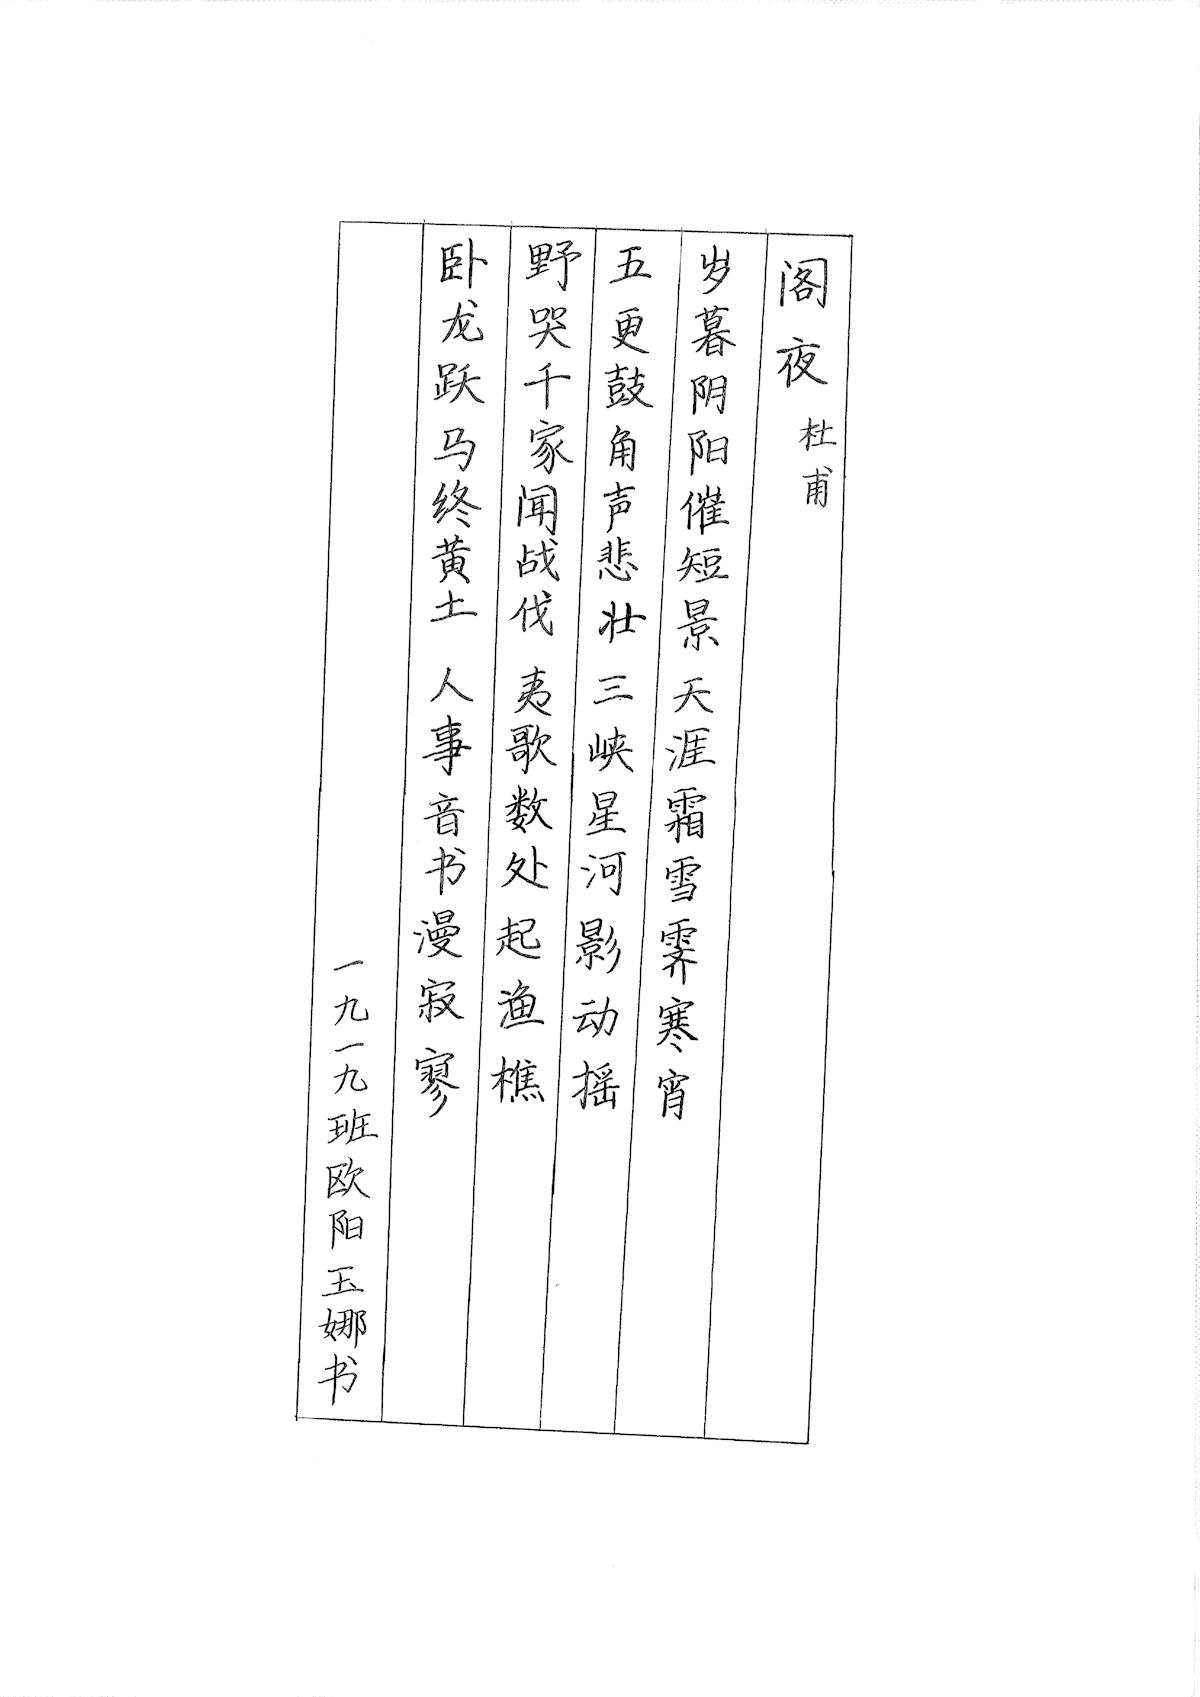 阁夜 杜甫
岁暮阴阳催短景 天涯霜雪霁寒宵
五更鼓角声悲壮 三峡星河影动摇
野哭千家闻战伐 夷歌数处起渔樵
卧龙跃马终黄土 人事音书漫寂寥
一九一九班欧阳玉娜书